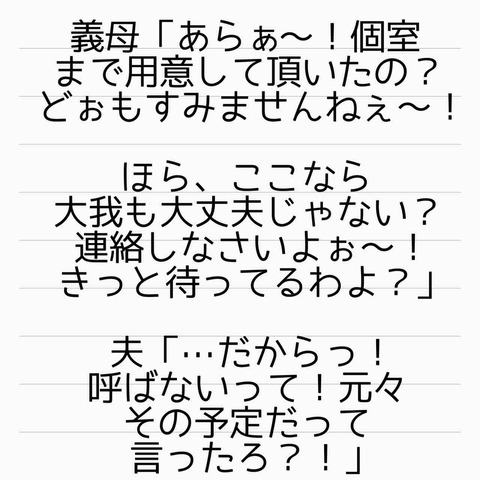 義母「あらぁ〜！個室
まで用意して頂いたの？
どぉもすみませんねぇ〜！
ほら、ここなら
大我も大丈夫じゃない？
連絡しなさいよぉ〜！
きっと待ってるわよ？」
夫「…だからっ！
呼ばないって！元々
その予定だって
言ったろ？！」